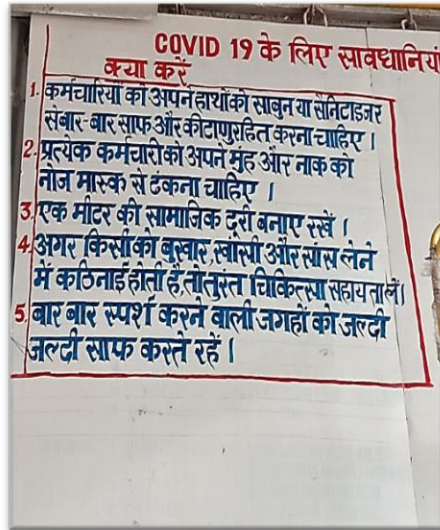 COVID 19 के लिए सावधानिय
क्या करें
1. कर्मचारियों को अपने हाथों को साबुन या सेनिटाइजर
से बार-बार साफ और कीटाणुरहित करना चाहिए ।
2. प्रत्येक कर्मचारी को अपने मुंह और नाक को
नोज मास्क से ढंकना चाहिए ।
3. एक मीटर की सामाजिक दूरी बनाए रखें ।
4. अगर किसी को बुखार, खाँसी और सांस लेने
में कठिनाई होती है, तो तुरंत चिकित्सा सहायता लें।
5. बार बार स्पर्श करने वाली जगहों को जल्दी
जल्दी साफ करते रहें ।